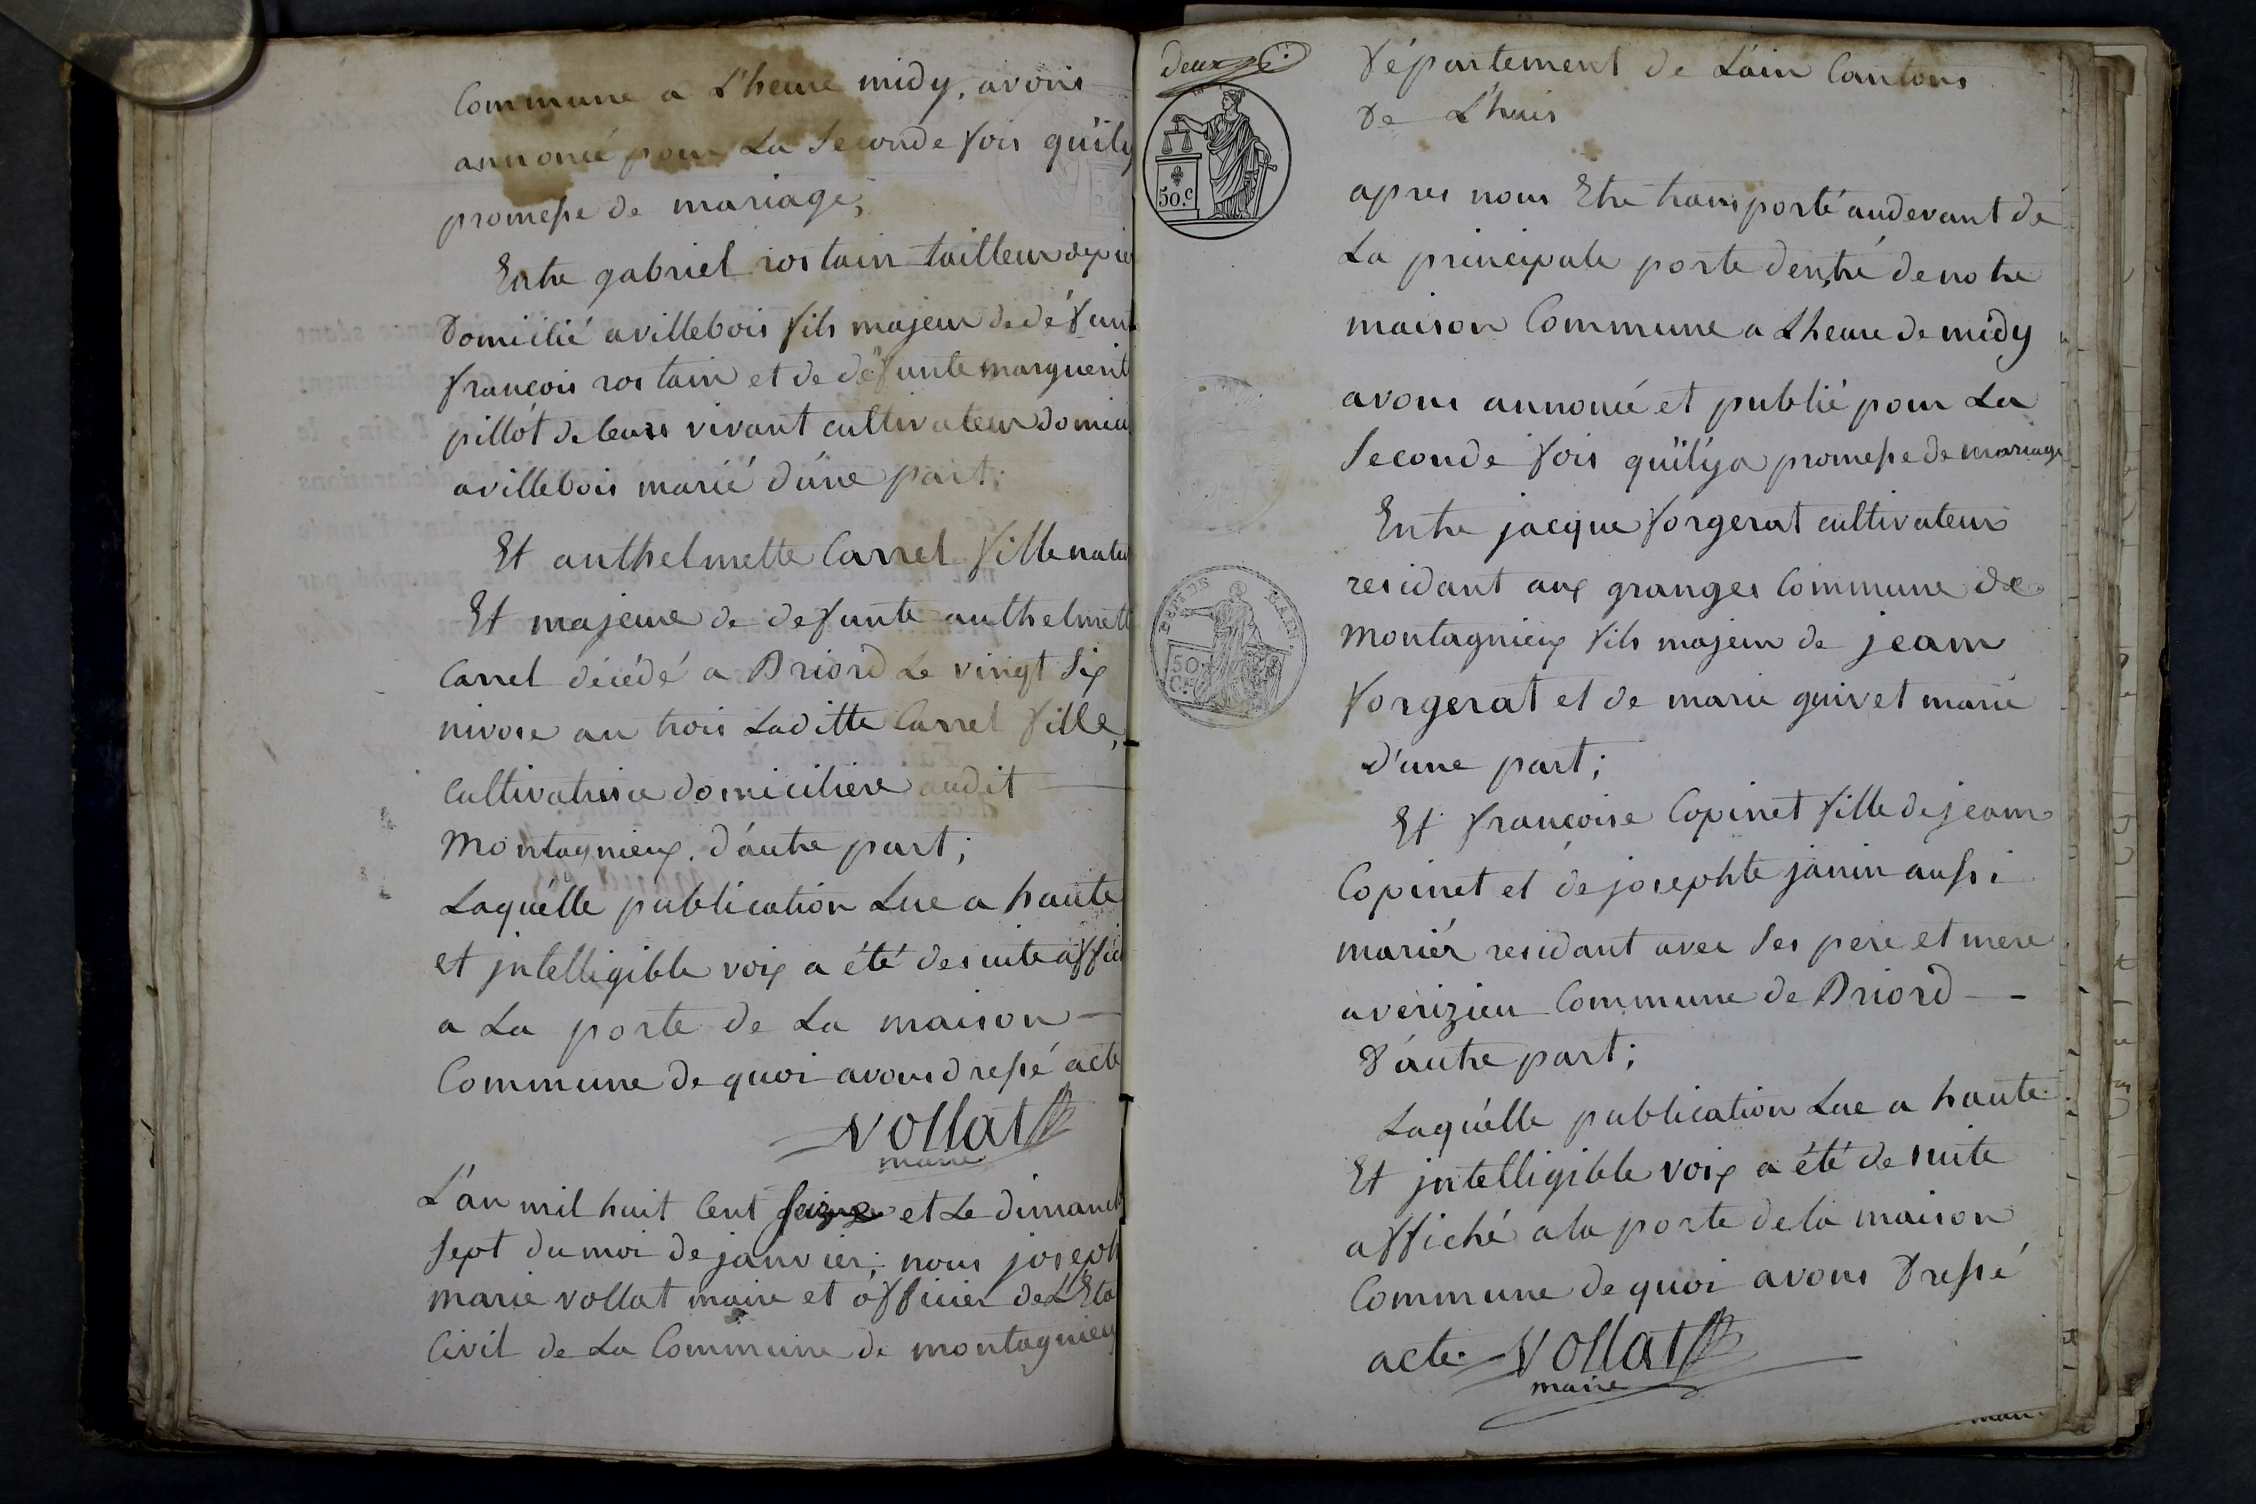 Commune a L'heure midy, avons
annoncé pour La Seconde fois qu'il y
promesse de mariage;
Entre gabriel rostain tailleur de pie
Domicilié a villebois fils majeur de défun
françois rostain et de défunte marguerit
pillot de leurs vivant cultivateur domici
a villebois marié d'une part;
Et anthelmette Carrel fille natu
Et majeure de defunte anthelmett
Carrel décédé a Briord Le vingt Six
nivose an trois Laditte Carrel fille,
Cultivatrice domicilière audit
Montagnieux. d'autre part;
Laquélle publication Lue a haute
et jntelligible voix a été de suite affic
a La porte de La maison
Commune de quoi avons dressé acte
vollat
maire
L'an mil huit Cent Seize et Le dimanch
Sept du moi de janvier; nous joseph
marie vollat maire et officier de L'Eta
Civil de La Commune de montagnieu
deux
département de L'ain Cantons
De L'huis
50.c
apres nous Etre transporté audevant de
La principale porte d'entré de notre
maison Commune a Lheure de midy
avons annoncé et publié pour La
Seconde fois qu'il y a promesse de mariage
Entre jacque forgerat cultivateur
residant aux granges Commune de
montagnieux fils majeur de jean
forgerat et de marie guivet marié
d'une part;
50
C.
Et françoise Copinet fille de jean
Copinet et de josephte janin aussi
mariér residant avec Ses pere et mere
a verizieu Commune de Briord
D'autre part;
Laquélle publication Lue a haute
Et jntelligible voix a été de suite
affiché a la porte de la maison
Commune de quoi avons Dressé
acte. vollat
maire